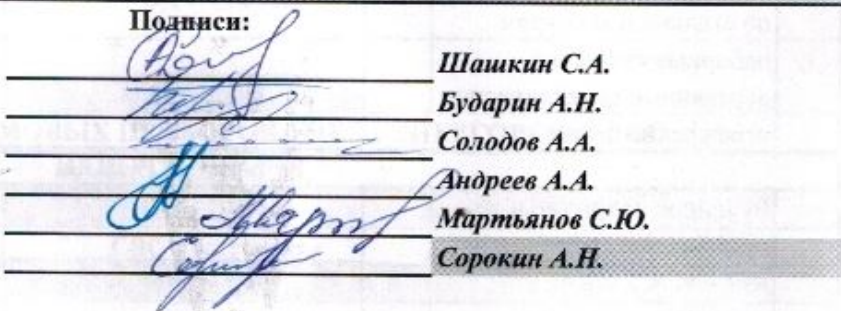 Подписи:
Шашкин С.А.
Бударин А.Н.
Солодов А.А.
Андреев А.А.
Мартьянов С.Ю.
Сорокин А.Н.